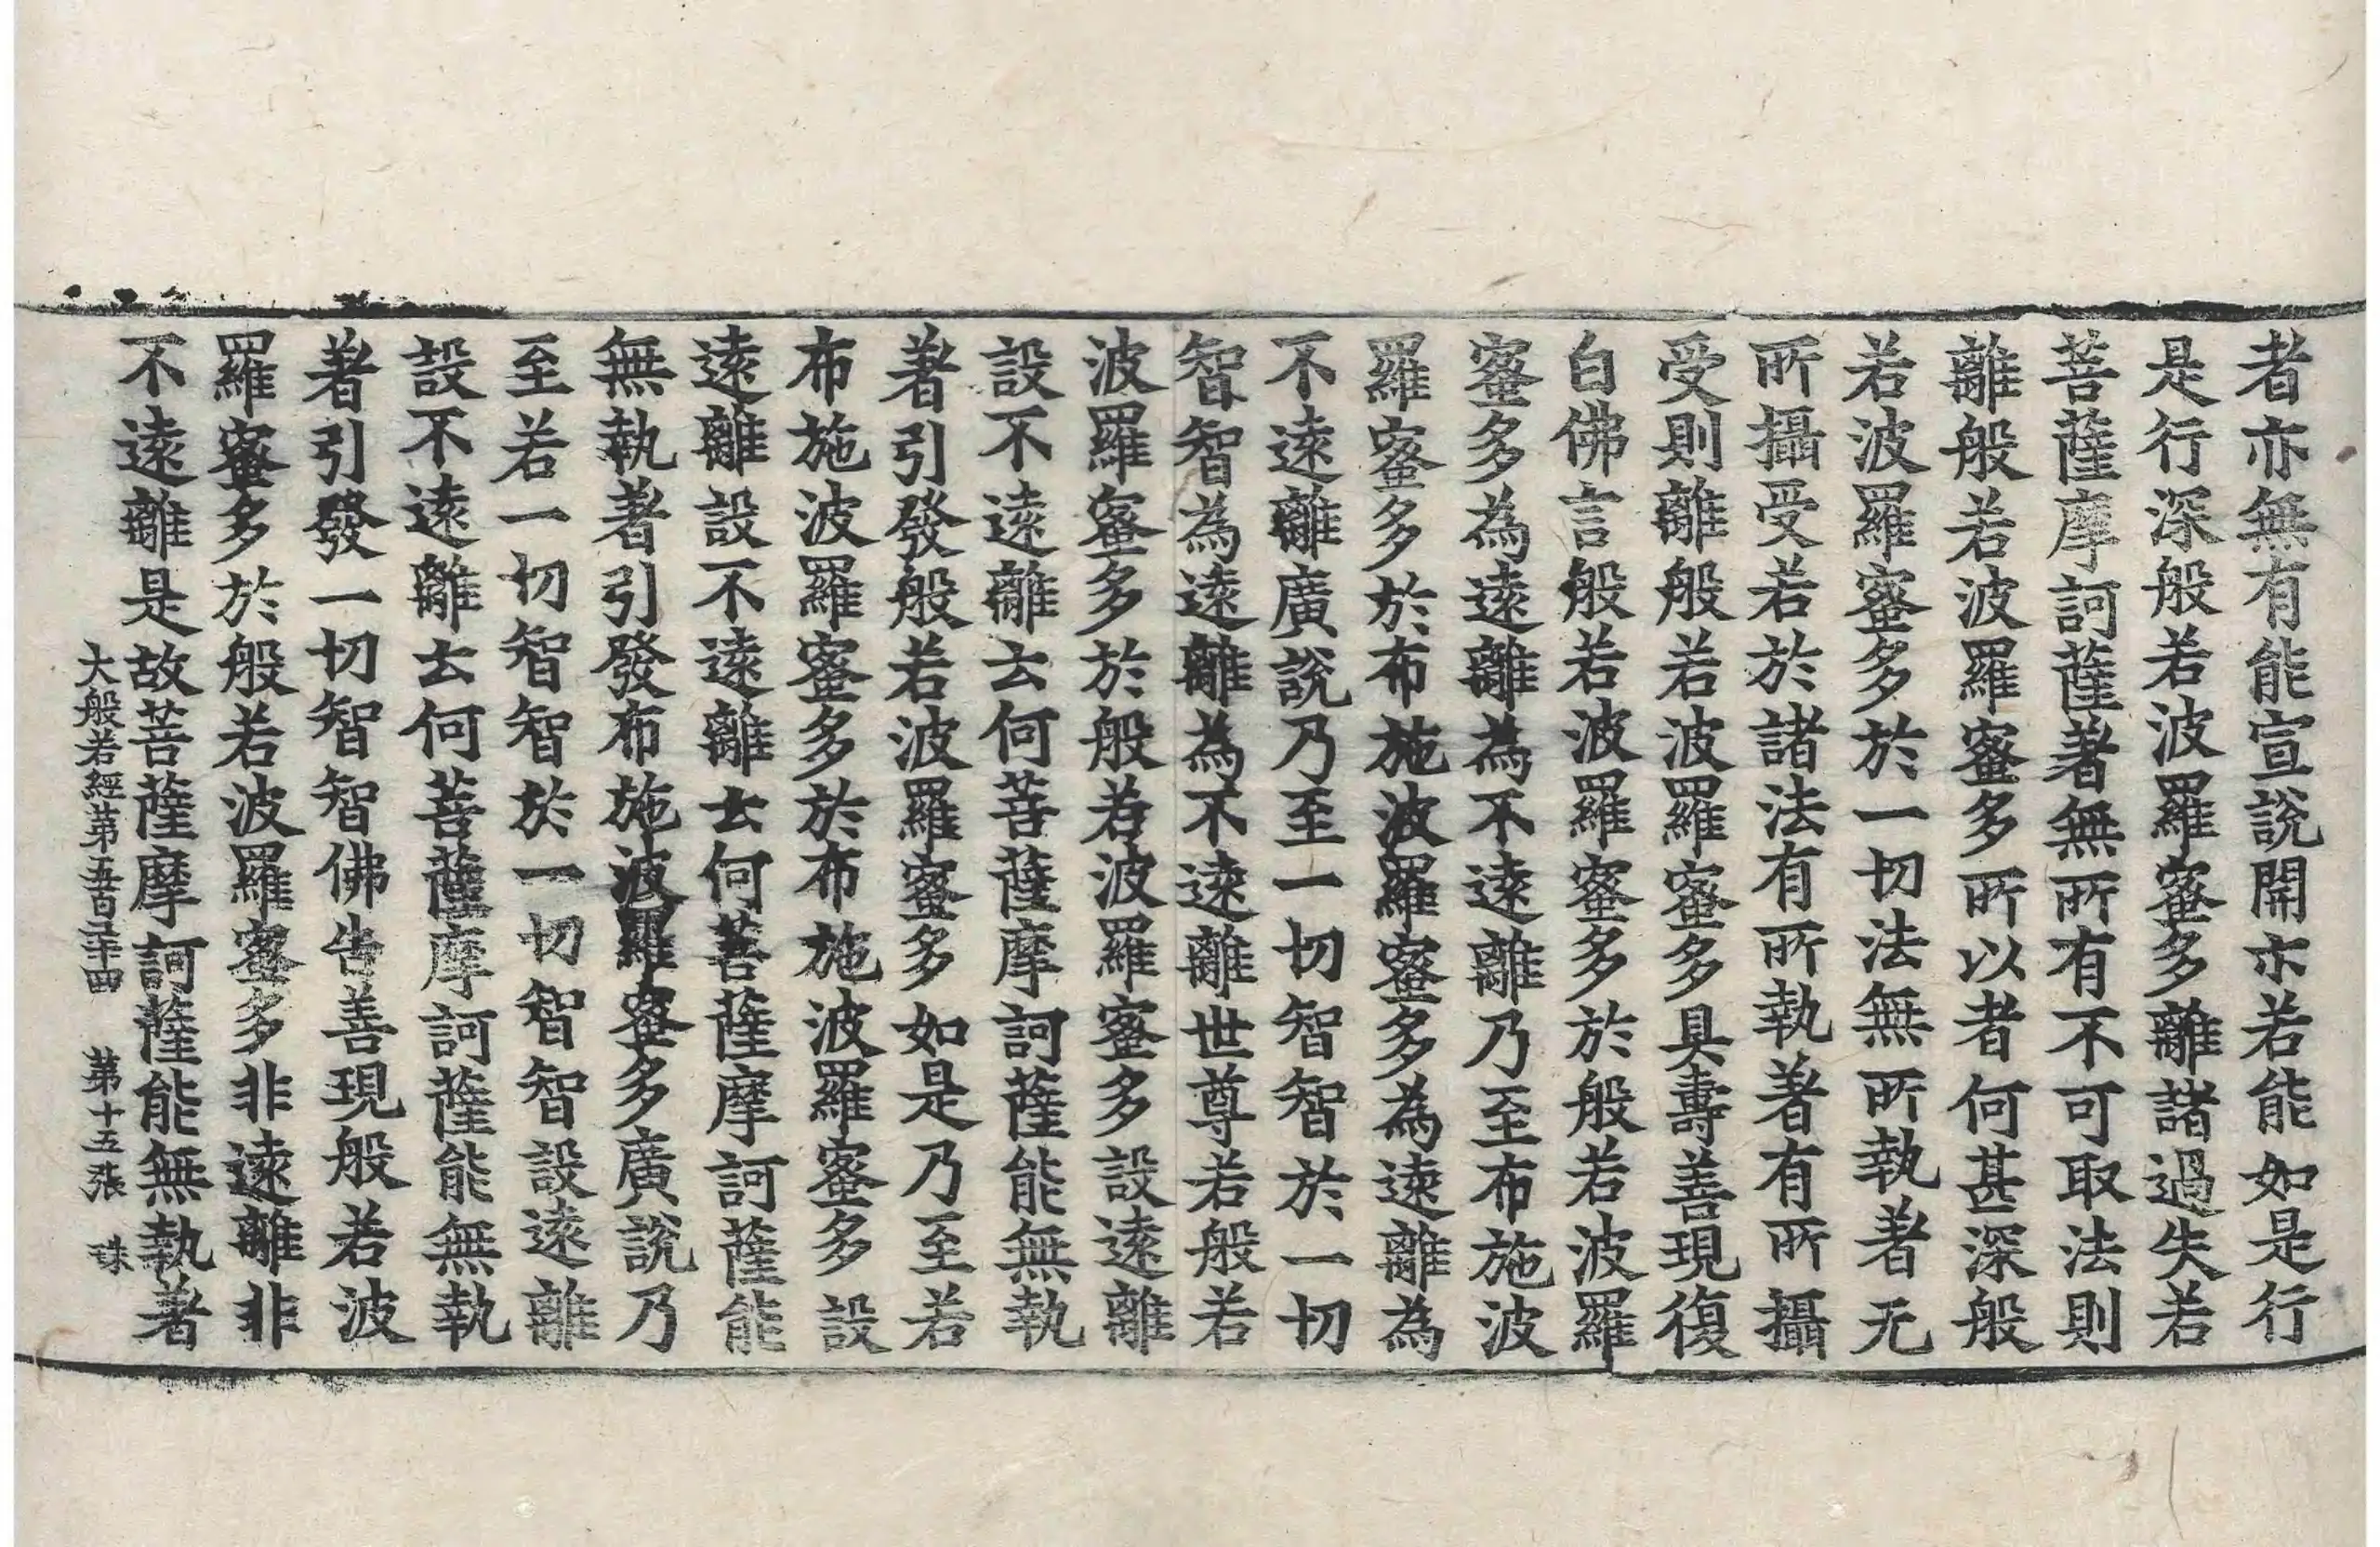 者亦無有能宣說開示若能如是行
是行深般若波羅蜜多離諸過失若
菩薩摩訶薩著無所有不可取法則
離般若波羅蜜多所以者何甚深般
若波羅蜜多於一切法無所執著无
所攝受若於諸法有所執著有所攝
受則離般若波羅蜜多具壽善現復
白佛言般若波羅蜜多於般若波羅
蜜多為遠離為不遠離乃至布施波
羅蜜多於布施波羅蜜多為遠離為
不遠離廣說乃至一切智智於一切
智智為遠離為不遠離世尊若般若
波羅蜜多於般若波羅蜜多設遠離
設不遠離云何菩薩摩訶薩能無執
著引發般若波羅蜜多如是乃至若
布施波羅蜜多於布施波羅蜜多設
遠離設不遠離云何菩薩摩訶薩能
無執著引發布施波羅蜜多廣說乃
至若一切智智於一切智智設遠離
設不遠離云何菩薩摩訶薩能無執
著引發一切智智佛告善現般若波
羅蜜多於般若波羅蜜多非遠離非
不遠離是故菩薩摩訶薩能無執著
大般若經第五百二十四 第十五張 珠